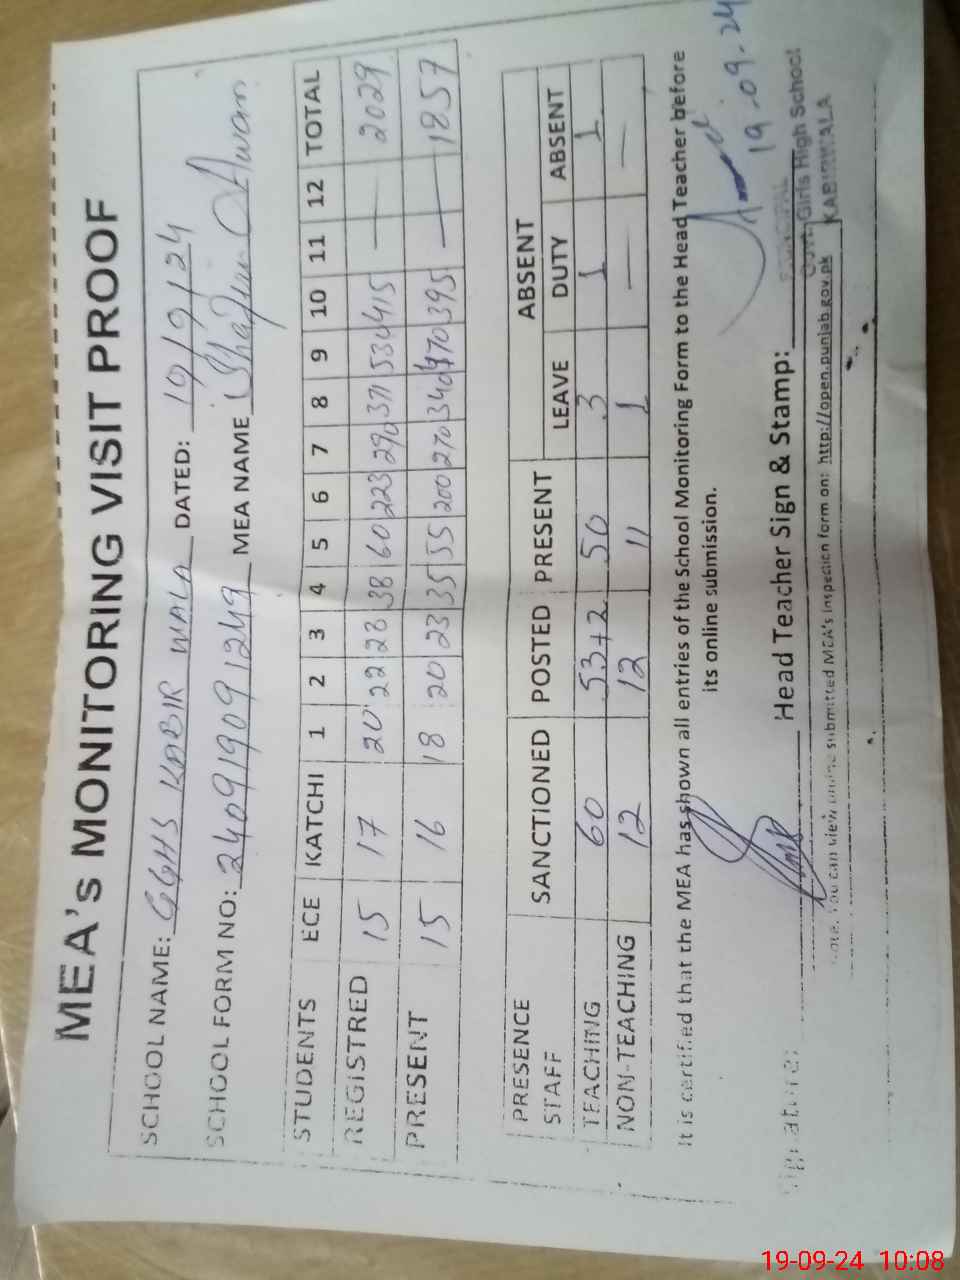 MEA's MONITORING VISIT PROOF
SCHOOL NAME: GGHS KABIR WALA DATED: 19/9/24
SCHOOL FORM NO: 240919091249 MEA NAME Awan
STUDENTS ECE KATCHI 1 2 3 4 5 6 7 8 9 10 11 12 TOTAL
REGISTRED 15 17 20 22 28 38 60 223 290 371 530 415 — — 2029
PRESENT 15 16 18 20 23 35 55 200 270 340 470 395 — — 1857
PRESENCE STAFF SANCTIONED POSTED PRESENT ABSENT
LEAVE DUTY ABSENT
TEACHING 60 53+2 50 3 1 1
NON-TEACHING 12 12 11 1 — —
It is certified that the MEA has shown all entries of the School Monitoring Form to the Head Teacher before
its online submission.
19.09.24
Signature: Head Teacher Sign & Stamp:
PRINCIPAL
Govt. Girls High School
KABIRWALA
Note: You can view online submitted MEA's inspection form on: http://open.punjab.gov.pk
19-09-24 10:08